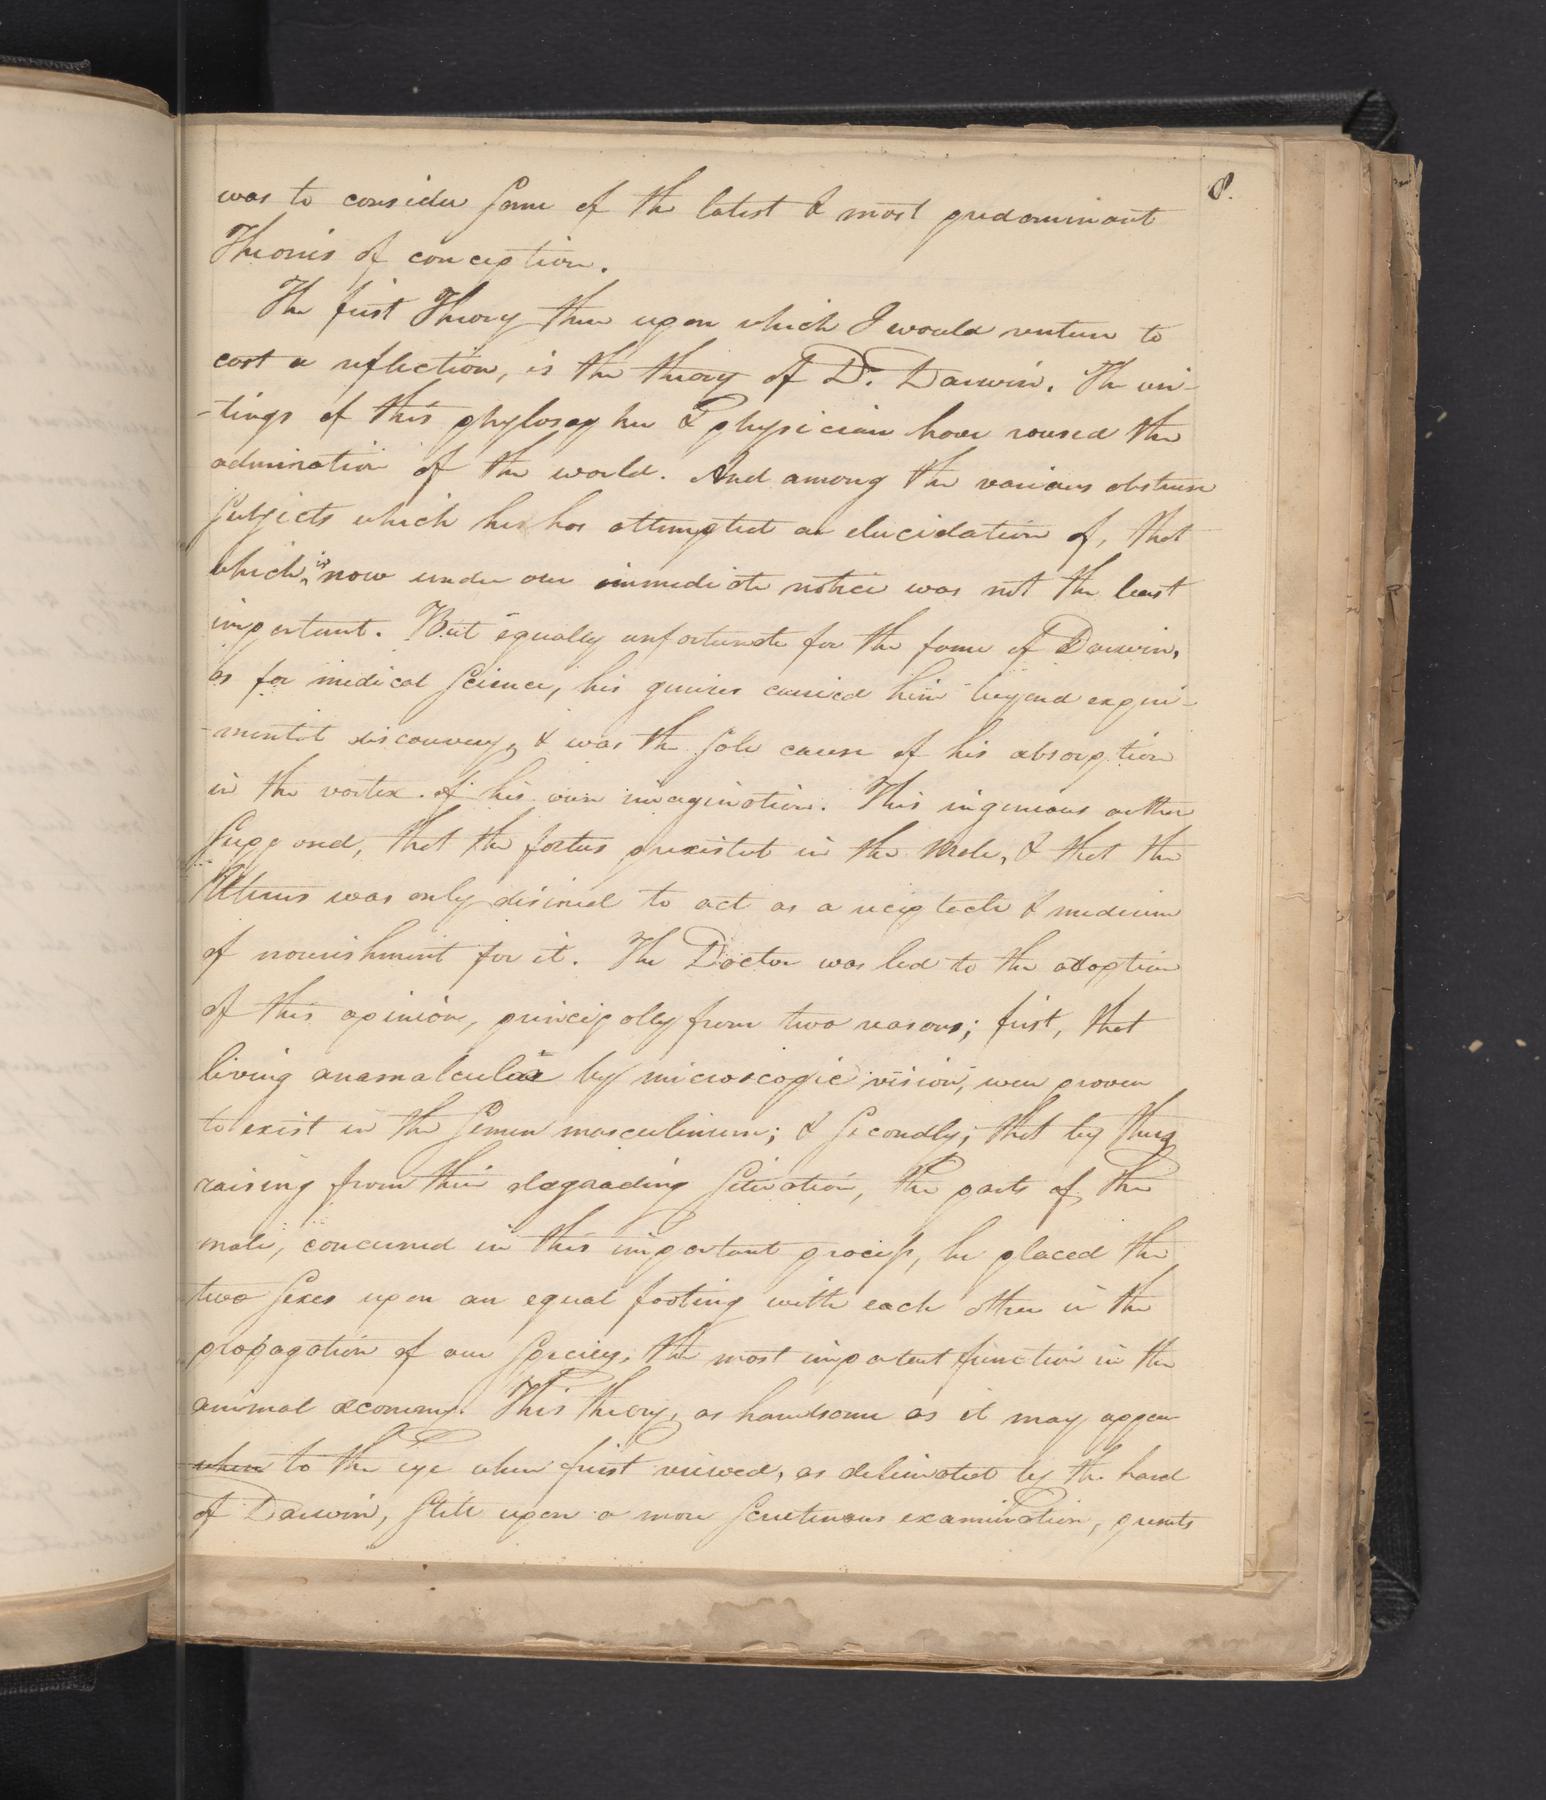 8.
was to consider some of the latest & most predominant
Theories of conception.
The first Theory then upon which I would venture to
cast a reflection, is the theory of Dr. Darwin. The wri-
-tings of this phylosopher & physician have roused the
admiration of the world. And among the various abstruse
subjects which he has attempted an elucidation of, that
which is now under our immediate notice was not the least
important. But equally unfortunate for the fame of Darwin,
as for medical science, his genius carried him beyond experi-
-mental discovery, & was the sole cause of his absorption
in the vortex of his own imagination. This ingenious author
supposed, that the foetus prexisted in the Male, & that the
Uterus was only disined to act as a receptacle & medium
of nourishment for it. The Doctor was led to the adoption
of this opinion, principally from two reasons; first, that
living anamalculae by microscopic vision, were proven
to exist in the semen masculinum; & secondly; that by thus
raising from their degrading situation, the parts of the
male, concerned in this important process, he placed the
two sexes upon an equal footing with each other in the
propagation of our species, the most important function in the
animal œconomy. This theory, as handsome as it may appear
when to the eye when first viewed, as delineated by the hand
of Darwin, still upon a more scrutinous examination, presents